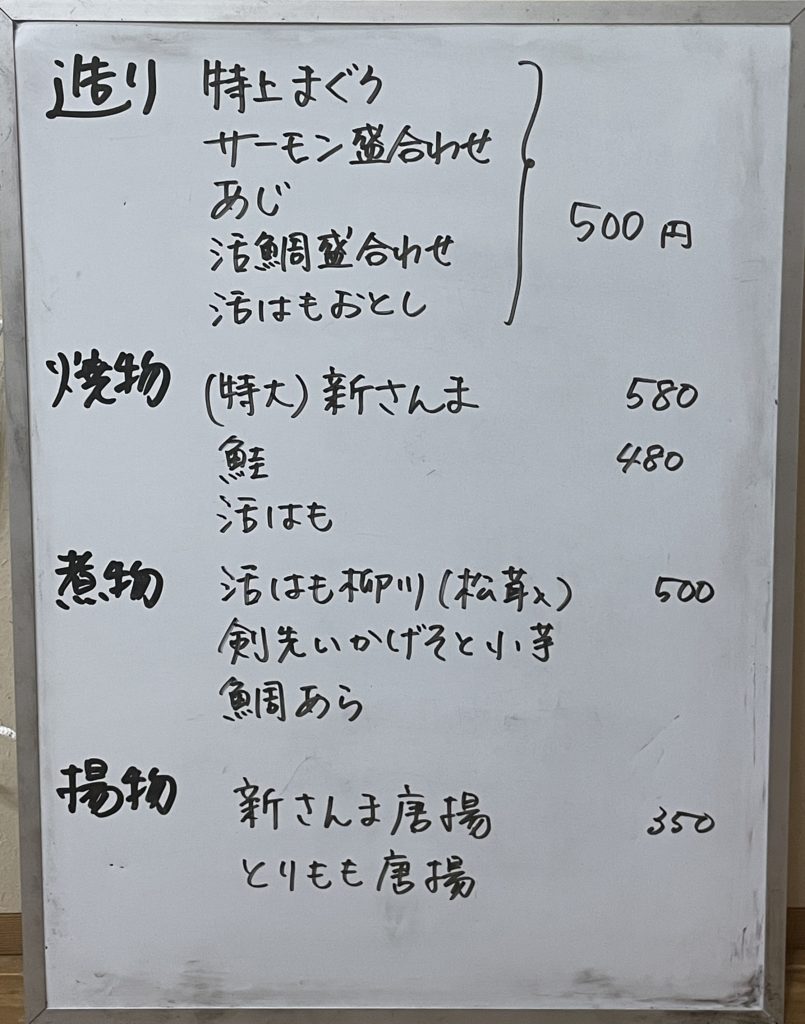 造り 特上まぐろ
サーモン盛合わせ
あじ
活鯛盛合わせ
活はもおとし
500円
焼物 (特大)新さんま 580
鮭 480
活はも
煮物 活はも柳川(松茸入) 500
剣先いかげそと小芋
鯛あら
揚物 新さんま唐揚 350
とりもも唐揚